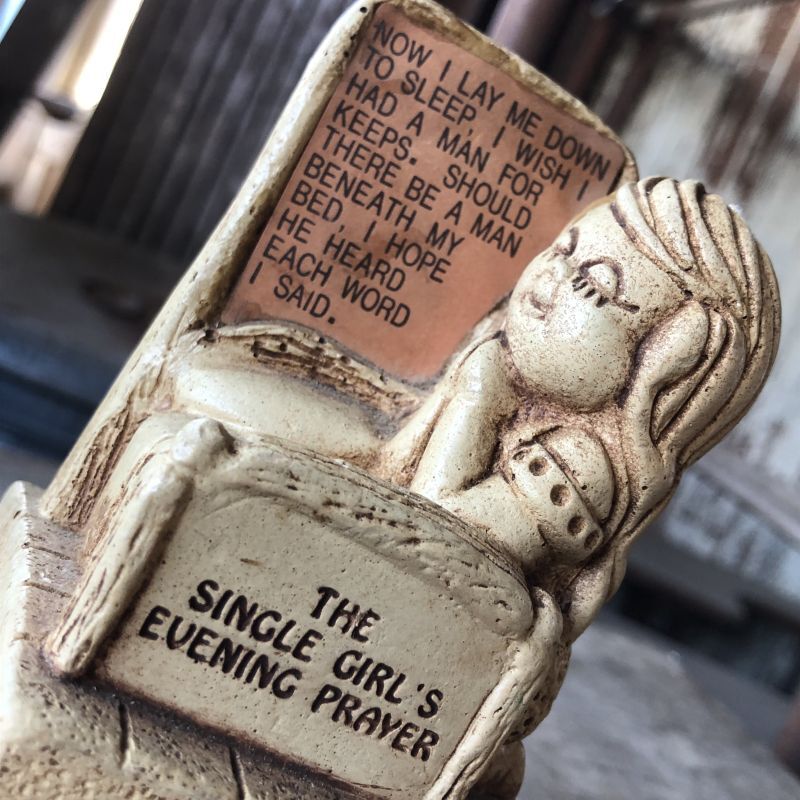 NOW I LAY ME DOWN
TO SLEEP, I WISH I
HAD A MAN FOR
KEEPS. SHOULD
THERE BE A MAN
BENEATH MY
BED, I HOPE
HE HEARD
EACH WORD
I SAID.
THE
SINGLE GIRL'S
EVENING PRAYER